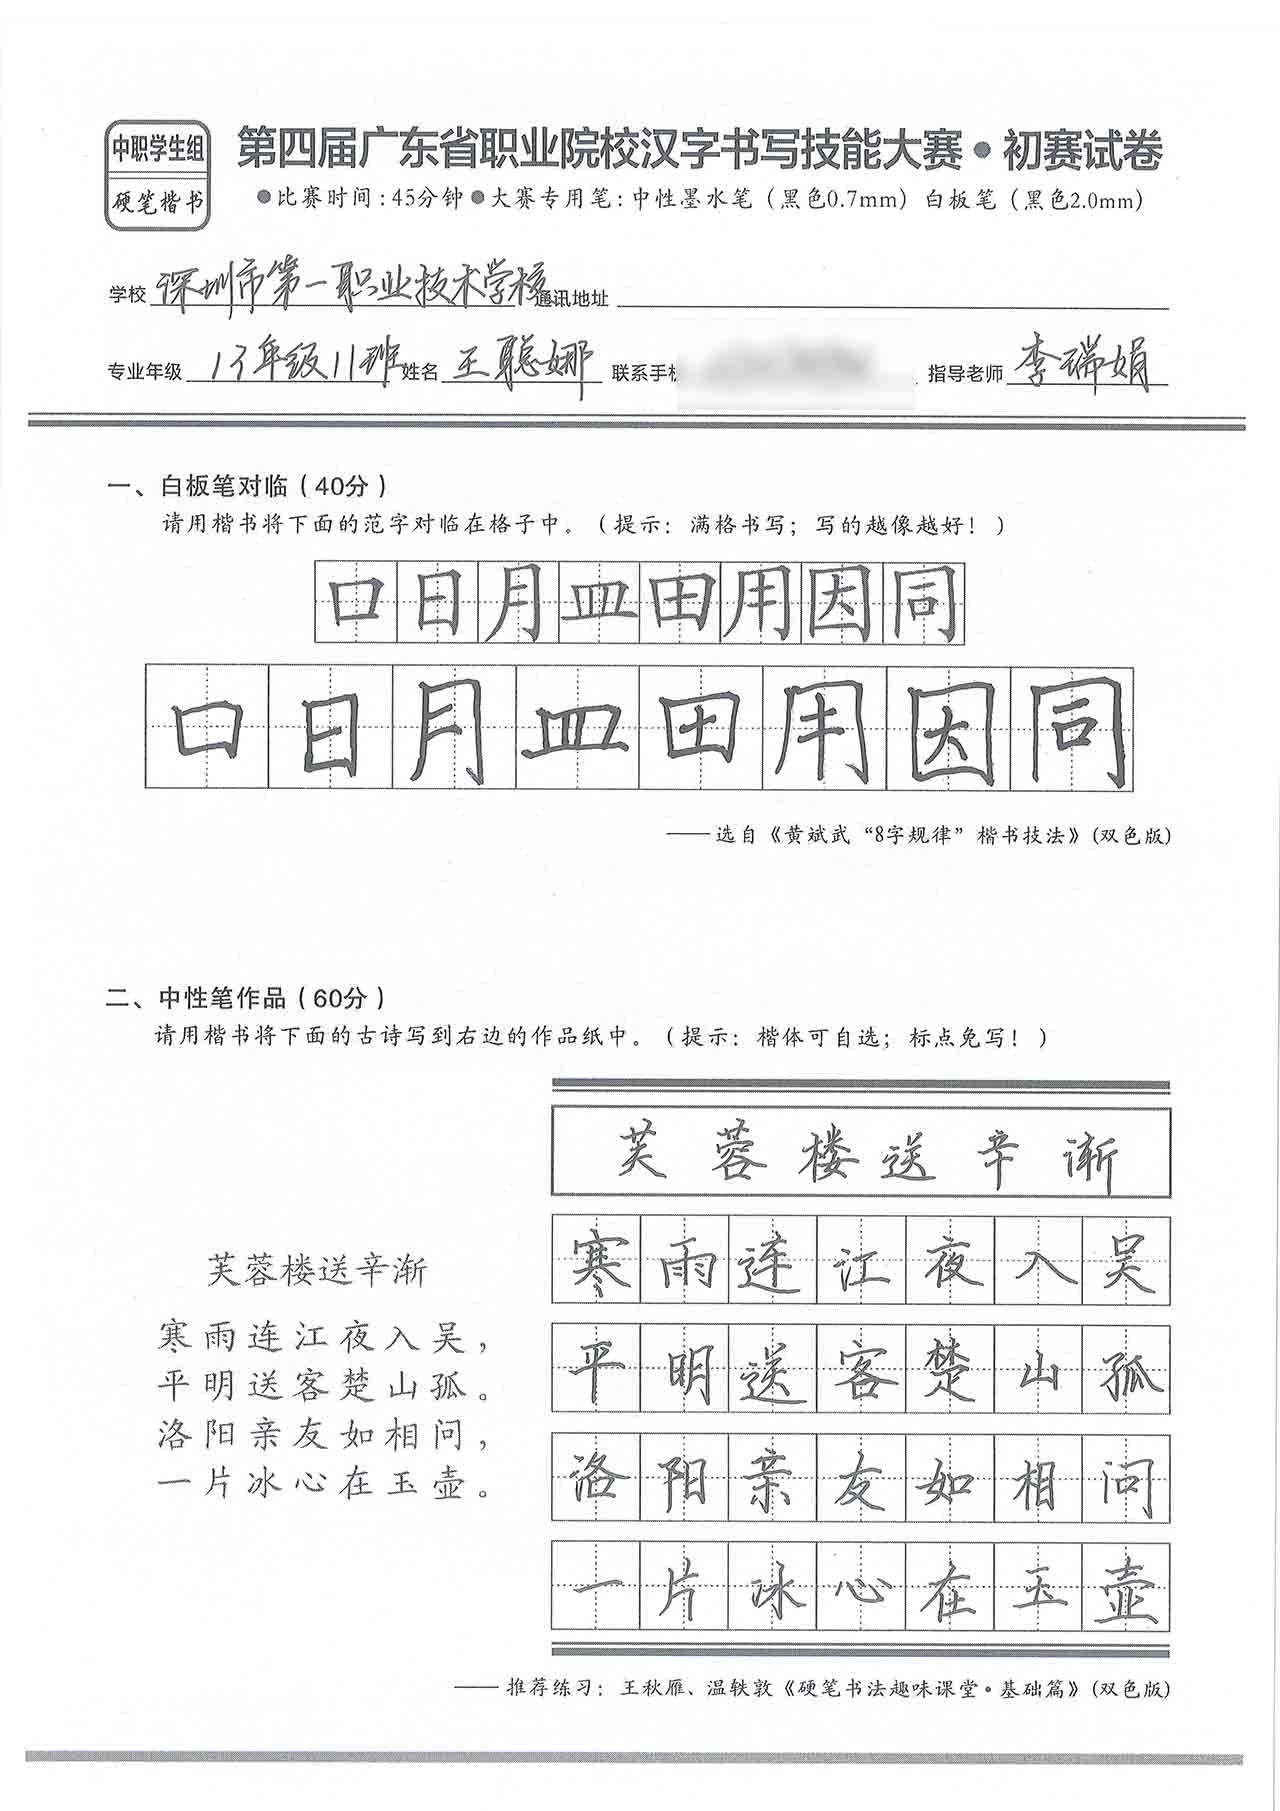 中职学生组
硬笔楷书
第四届广东省职业院校汉字书写技能大赛·初赛试卷
●比赛时间:45分钟●大赛专用笔:中性墨水笔（黑色0.7mm）白板笔（黑色2.0mm）
学校 深圳市第一职业技术学校 通讯地址
专业年级 13年级11班 姓名 王聪娜 联系手机 指导老师 李瑞娟
一、白板笔对临（40分）
请用楷书将下面的范字对临在格子中。（提示：满格书写；写的越像越好！）
口日月皿田用因同
口日月皿田用因同
——选自《黄斌武“8字规律”楷书技法》(双色版)
二、中性笔作品（60分）
请用楷书将下面的古诗写到右边的作品纸中。（提示：楷体可自选；标点免写！）
芙蓉楼送辛渐
寒雨连江夜入吴，
平明送客楚山孤。
洛阳亲友如相问，
一片冰心在玉壶。
芙蓉楼送辛渐
寒雨连江夜入吴
平明送客楚山孤
洛阳亲友如相问
一片冰心在玉壶
——推荐练习：王秋雁、温轶敦《硬笔书法趣味课堂·基础篇》(双色版)